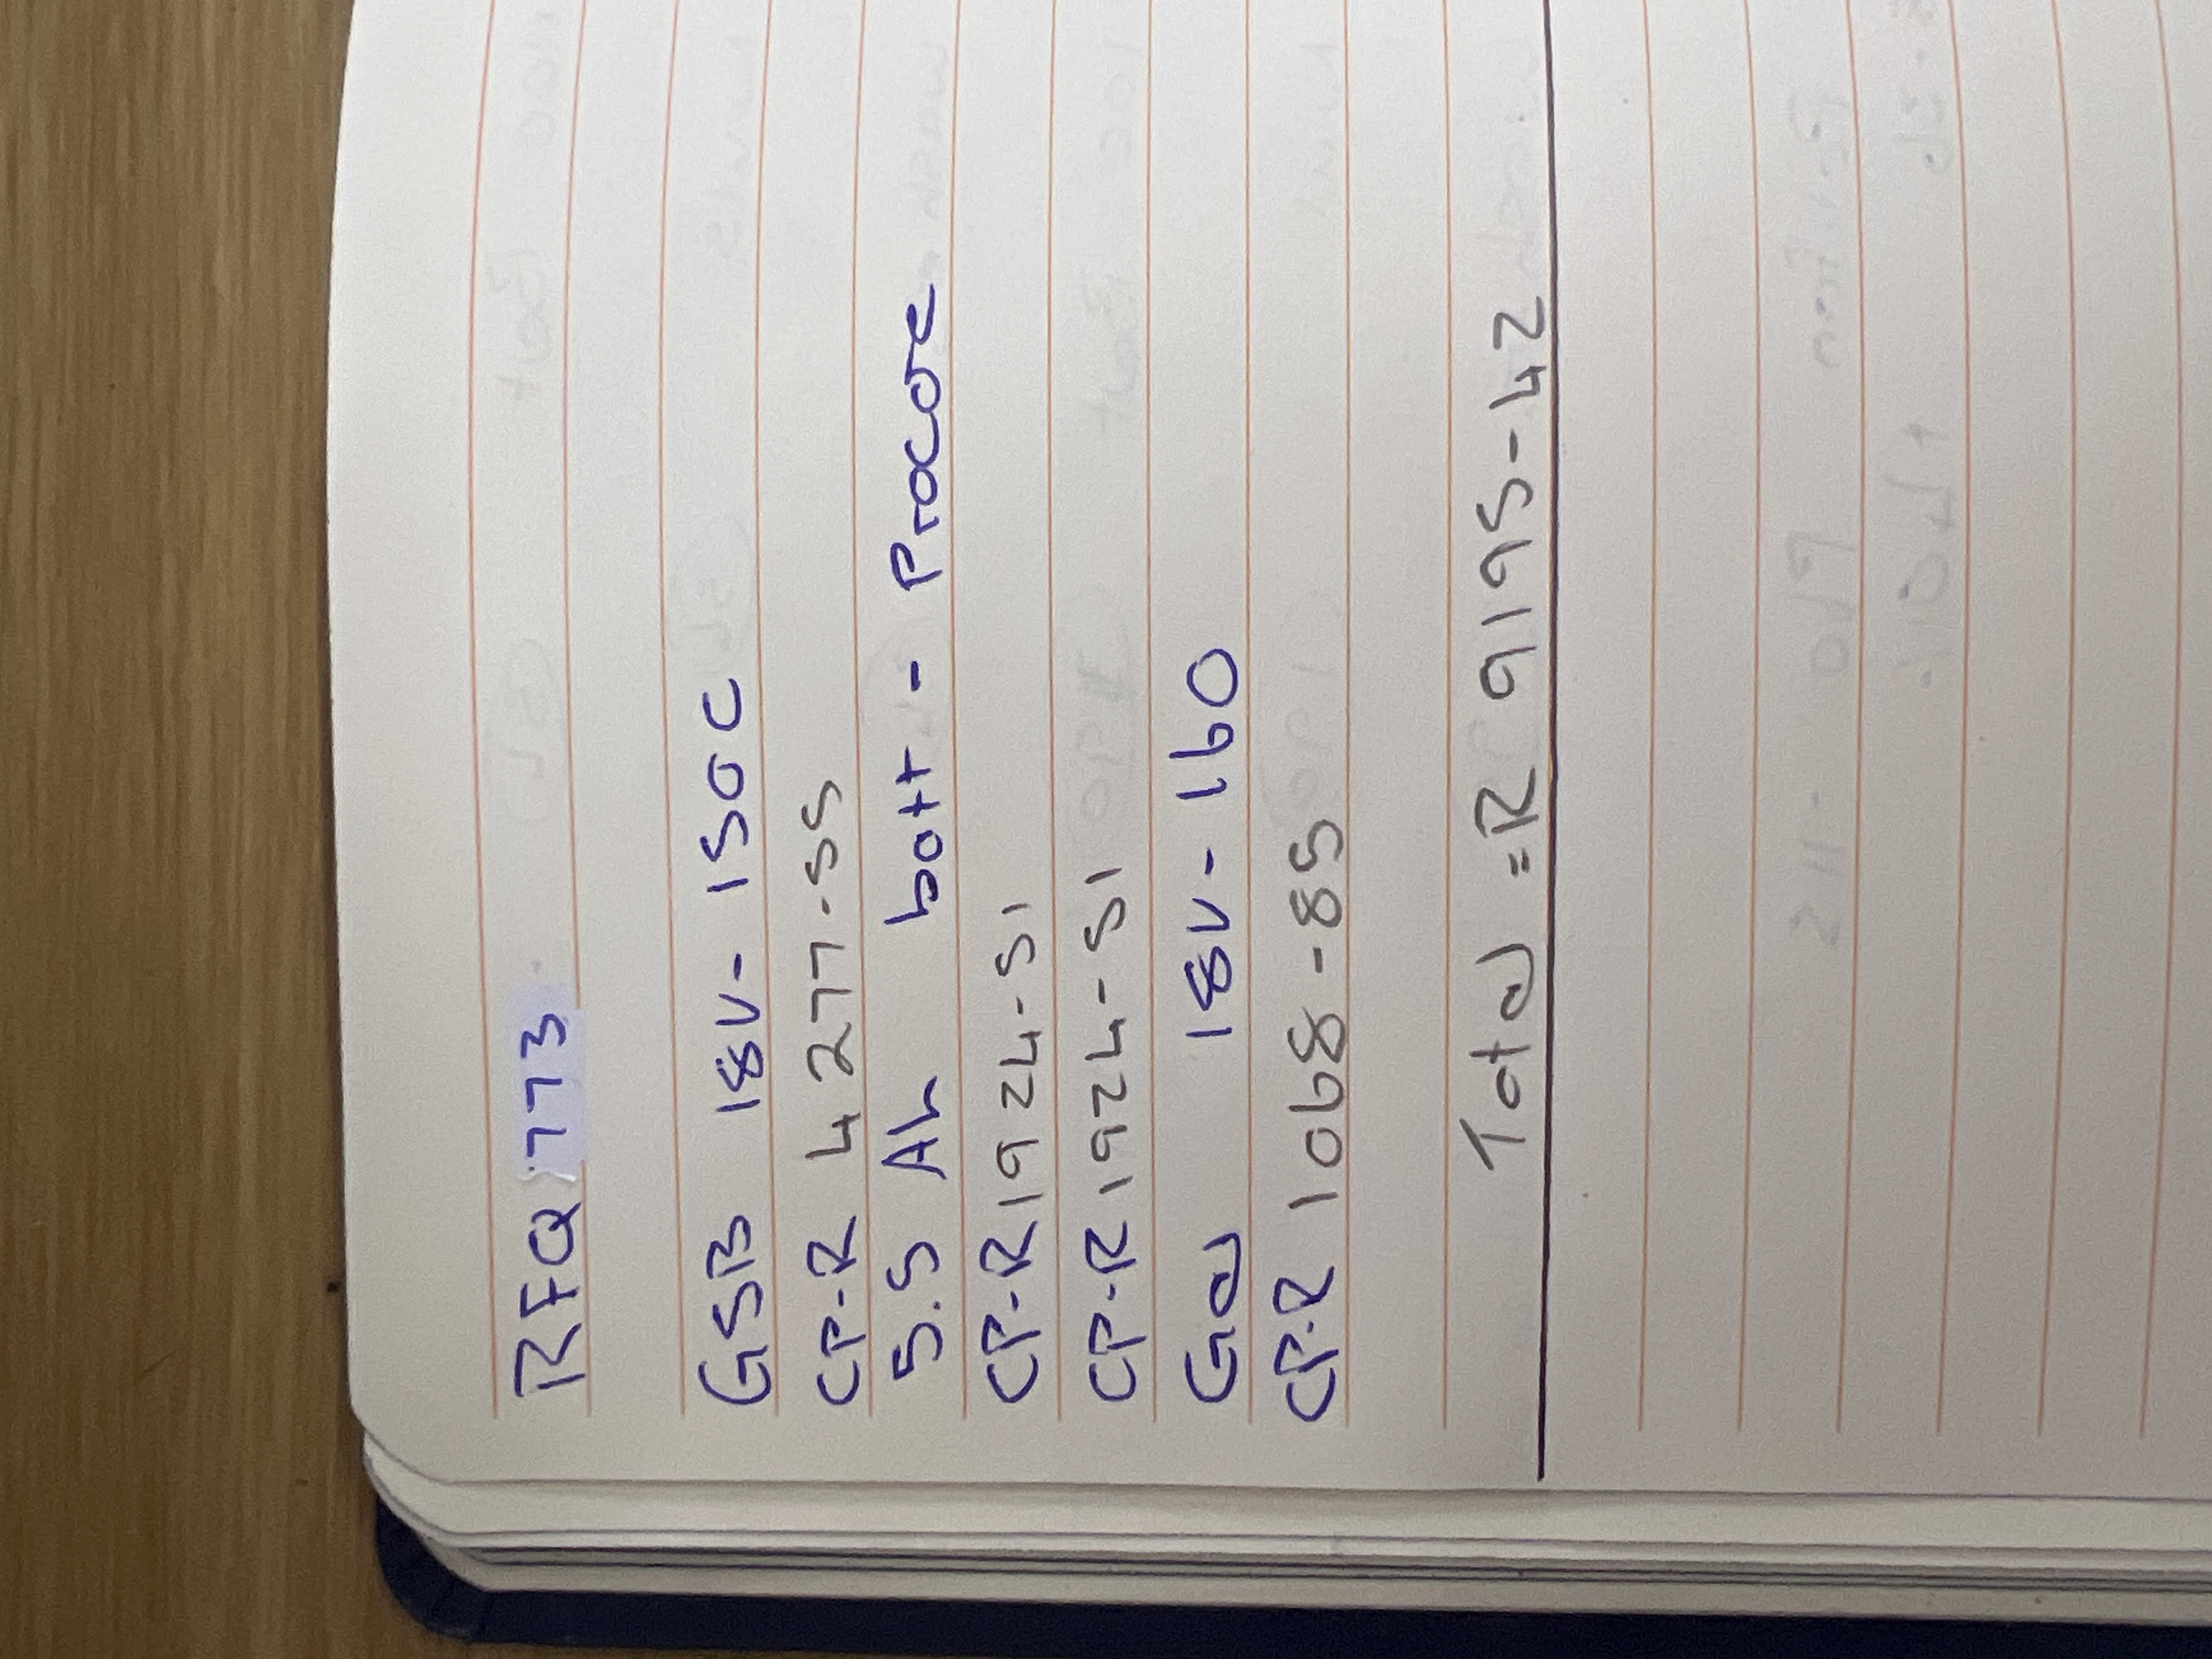 RFQ 773
GSB 18V- 150C
CP-R 4277-55
5.5 Ah batt - Procore
CP-R1924-51
CP-R1924-51
Gal 18V-160
CP-R 1068-85
Total =R 9195-42